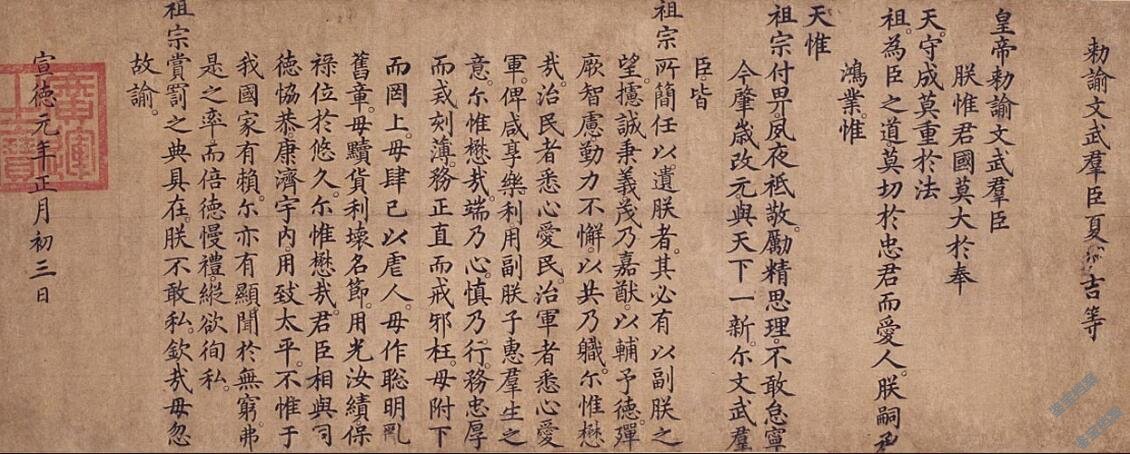 勅諭文武羣臣夏原吉等
皇帝勅諭文武羣臣
朕惟君國莫大於奉
天。守成莫重於法
祖。為臣之道。莫切於忠君而愛人。朕嗣承
鴻業。惟
天惟
祖宗付畀。夙夜祗敬。勵精思理。不敢怠寧
今肇歲改元。與天下一新。尔文武羣
臣皆
祖宗所簡任以遺朕者。其必有以副朕之
望。攄誠秉義。茂乃嘉猷。以輔予德。殫
厥智慮。勤力不懈。以共乃職。尔惟懋
㢤。治民者悉心愛民。治軍者悉心愛
軍。俾咸享樂利。用副朕子惠羣生之
意。尔惟懋㢤。端乃心。慎乃行。務忠厚
而戒刻薄。務正直而戒邪枉。毋附下
而罔上。毋肆己以虐人。毋作聡明亂
舊章。毋黷貨利壊名節。用光汝績。保
禄位於悠久。尔惟懋㢤。君臣相與。同
徳恊恭。康濟宇内。用致太平。不惟于
我國家有賴。尔亦有顯聞於無窮。弗
是之率。而倍徳慢禮。縱欲徇私。
祖宗賞罰之典具在。朕不敢私。欽㢤毋忽
故諭。
宣徳元年正月初三日
廣運之寶